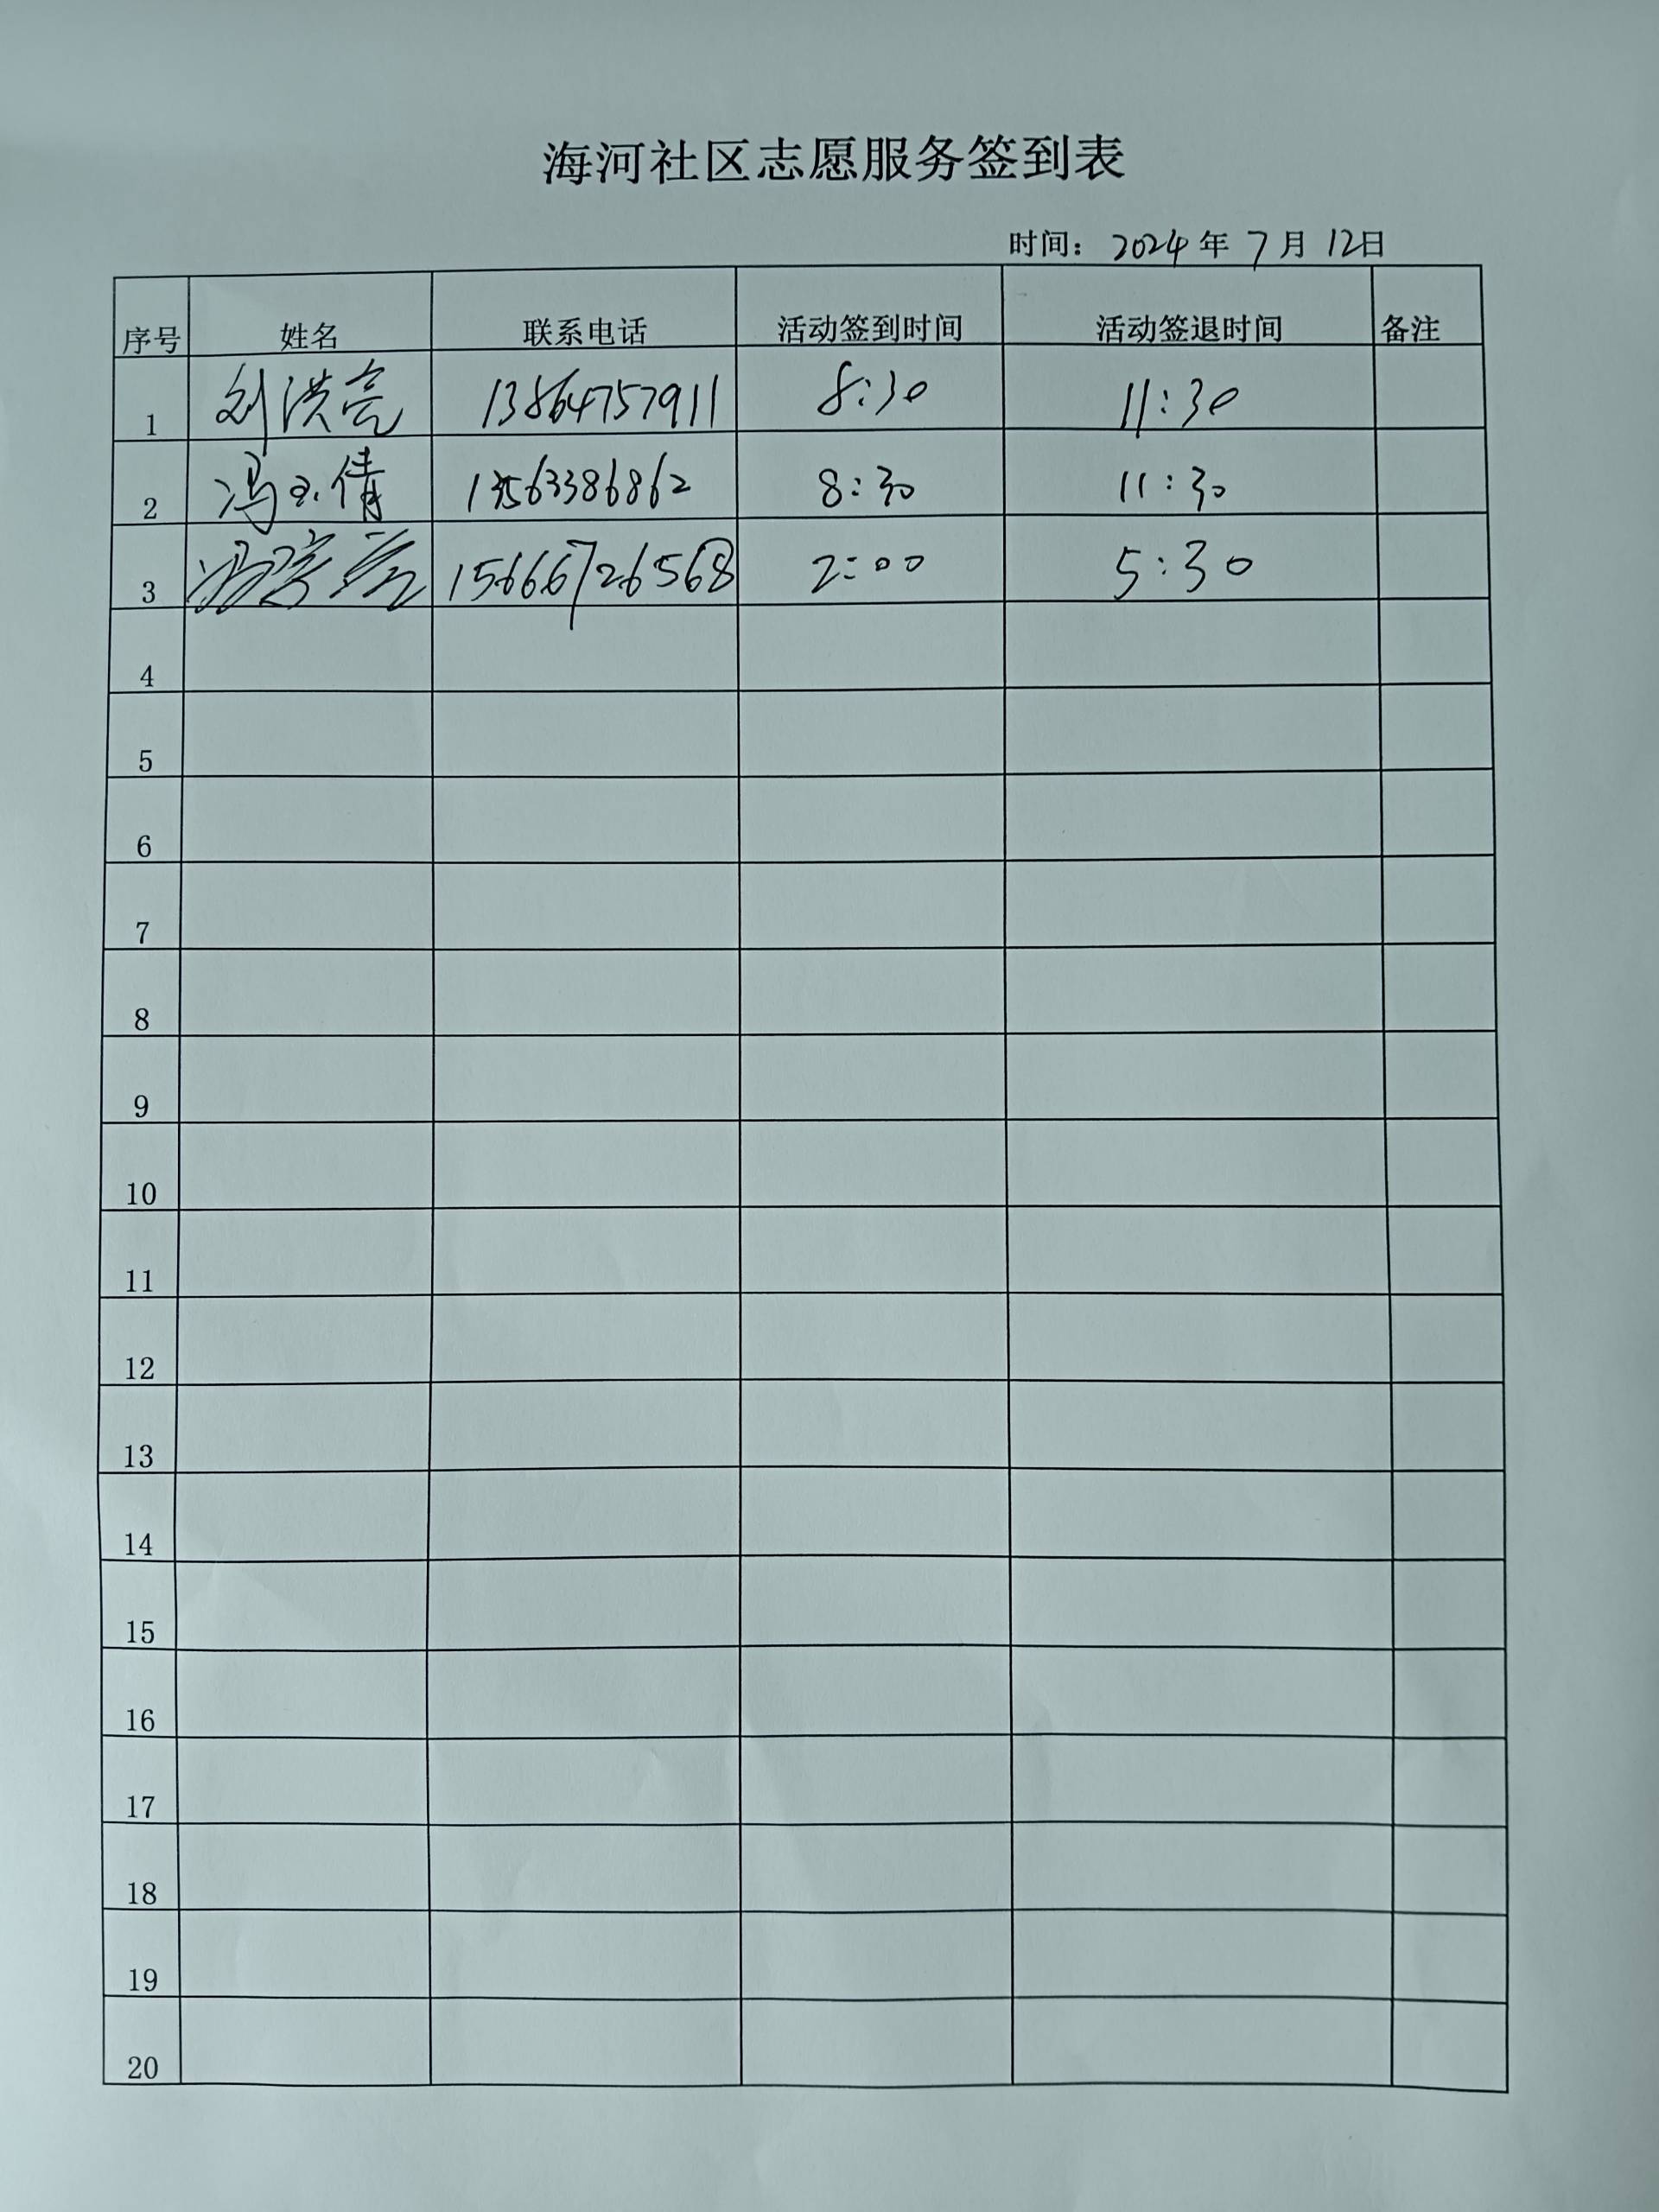 海河社区志愿服务签到表
时间： 2024 年 7 月 12日
序号 姓名 联系电话 活动签到时间 活动签退时间 备注
1 刘洪亮 13864757911 8:30 11:30
2 冯玉倩 13563386862 8:30 11:30
3 冯 15666726568 2:00 5:30
4
5
6
7
8
9
10
11
12
13
14
15
16
17
18
19
20